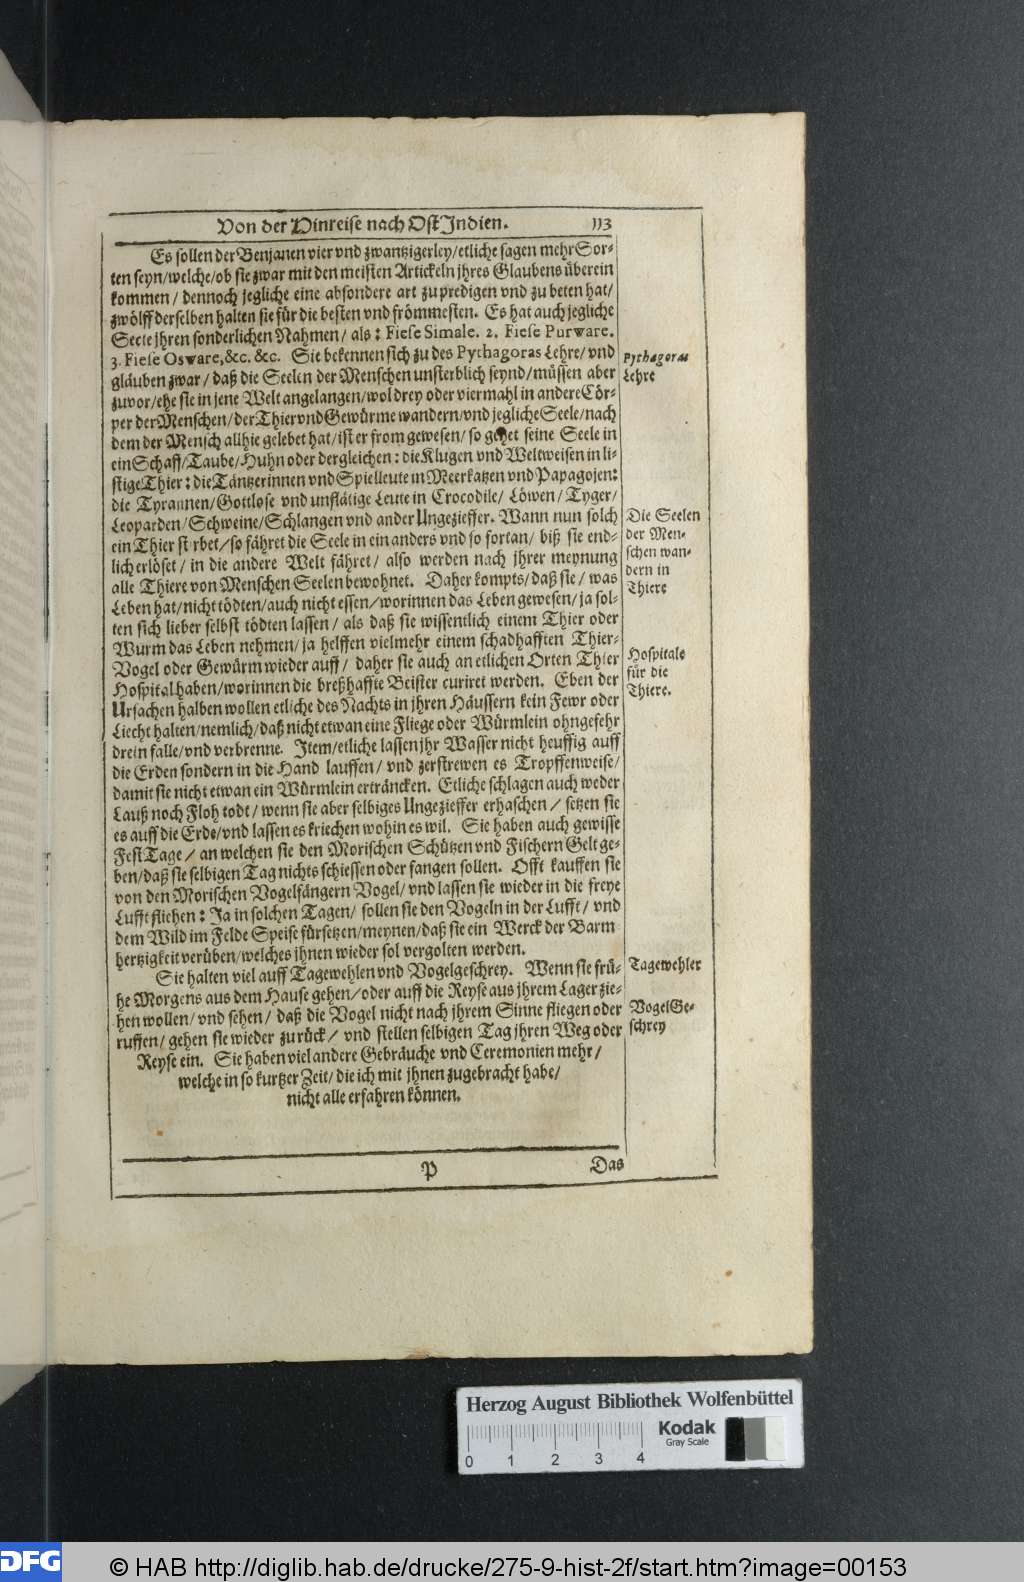 Von der Hinreise nach Ost Indien. 113
Es sollen der Benjanen vier vnd zwantzigerley/etliche sagen mehr Sor-
ten seyn/welche/ob sie zwar mit den meisten Artickeln jhres Glaubens überein
kommen/ dennoch jegliche eine absondere art zu predigen vnd zu beten hat/
zwölff derselben halten sie für die besten vnd frömmesten. Es hat auch jegliche
Seete jhren sonderlichen Nahmen/ als: Fiese Simale. 2. Fiese Purware.
3. Fiese Osware, &c. &c. Sie bekennen sich zu des Pythagoras Lehre/ vnd
gläuben zwar/ daß die Seelen der Menschen vnsterblich seynd/ müssen aber
zuvor/ehe sie in jene Welt angelangen/wol drey oder viermahl in andere Cör-
per der Menschen/ der Thier vnd Gewürme wandern/vnd jegliche Seele/nach
dem der Mensch allhie gelebet hat/ist er from gewesen/ so gehet seine Seele in
ein Schaff/Taube/Huhn oder dergleichen: die Klugen vnd Weltweisen in li-
stige Thier: die Täntzerinnen vnd Spielleute in Meerkatzen vnd Papagojen:
die Tyrannen/Gottlose vnd vnflätige Leute in Crocodile/ Löwen/ Tyger/
Leoparden/Schweine/Schlangen vnd ander Ungezieffer. Wann nun solch
ein Thier st rbet/so fähret die Seele in ein anders vnd so fortan/ biß sie end-
lich erlöset/ in die andere Welt fähret/ also werden nach jhrer meynung
alle Thiere von Menschen Seelen bewohnet. Daher kompts/daß sie/ was
Leben hat/nicht tödten/auch nicht essen/worinnen das Leben gewesen/ja sol-
ten sich lieber selbst tödten lassen/ als daß sie wissentlich einem Thier oder
Wurm das Leben nehmen/ ja helffen vielmehr einem schadhafften Thier-
Vogel oder Gewürm wieder auff/ daher sie auch an etlichen Orten Thier
Hospital haben/worinnen die breßhaffte Beister curiret werden. Eben der
Ursachen halben wollen etliche des Nachts in jhren Häussern kein Fewr oder
Liecht halten/nemlich/daß nicht etwan eine Fliege oder Würmlein ohngefehr
drein falle/vnd verbrenne. Item/etliche lassen jhr Wasser nicht heuffig auff
die Erden sondern in die Hand lauffen/ vnd zerstrewen es Tropffenweise/
damit sie nicht etwan ein Würmlein erträncken. Etliche schlagen auch weder
Lauß noch Floh todt/ wenn sie aber selbiges Ungezieffer erhaschen/ setzen sie
es auff die Erde/vnd lassen es kriechen wohin es wil. Sie haben auch gewisse
Fest Tage/ an welchen sie den Morischen Schützen vnd Fischern Gelt ge-
ben/daß sie selbigen Tag nichts schiessen oder fangen sollen. Offt kauffen sie
von den Morischen Vogelfängern Vogel/ vnd lassen sie wieder in die freye
Lufft fliehen: Ja in solchen Tagen/ sollen sie den Vogeln in der Lufft/ vnd
dem Wild im Felde Speise fürsetzen/meynen/daß sie ein Werck der Barm
hertzigkeit verüben/welches jhnen wieder sol vergolten werden.
Sie halten viel auff Tagewehlen vnd Vogelgeschrey. Wenn sie frü-
he Morgens aus dem Hause gehen/oder auff die Reyse aus jhrem Lager zie-
hen wollen/ vnd sehen/ daß die Vogel nicht nach jhrem Sinne fliegen oder
ruffen/ gehen sie wieder zurück/ vnd stellen selbigen Tag jhren Weg oder
Reyse ein. Sie haben viel andere Gebräuche vnd Ceremonien mehr/
welche in so kurtzer Zeit/ die ich mit jhnen zugebracht habe/
nicht alle erfahren können.
Pythagoras
Lehre
Die Seelen
der Men-
schen wan-
dern in
Thiere
Hospitale
für die
Thiere.
Tagewehler
Vogel Ge-
schrey
P Das
Herzog August Bibliothek Wolfenbüttel
Kodak
Gray Scale
0 1 2 3 4
DFG © HAB http://diglib.hab.de/drucke/275-9-hist-2f/start.htm?image=00153